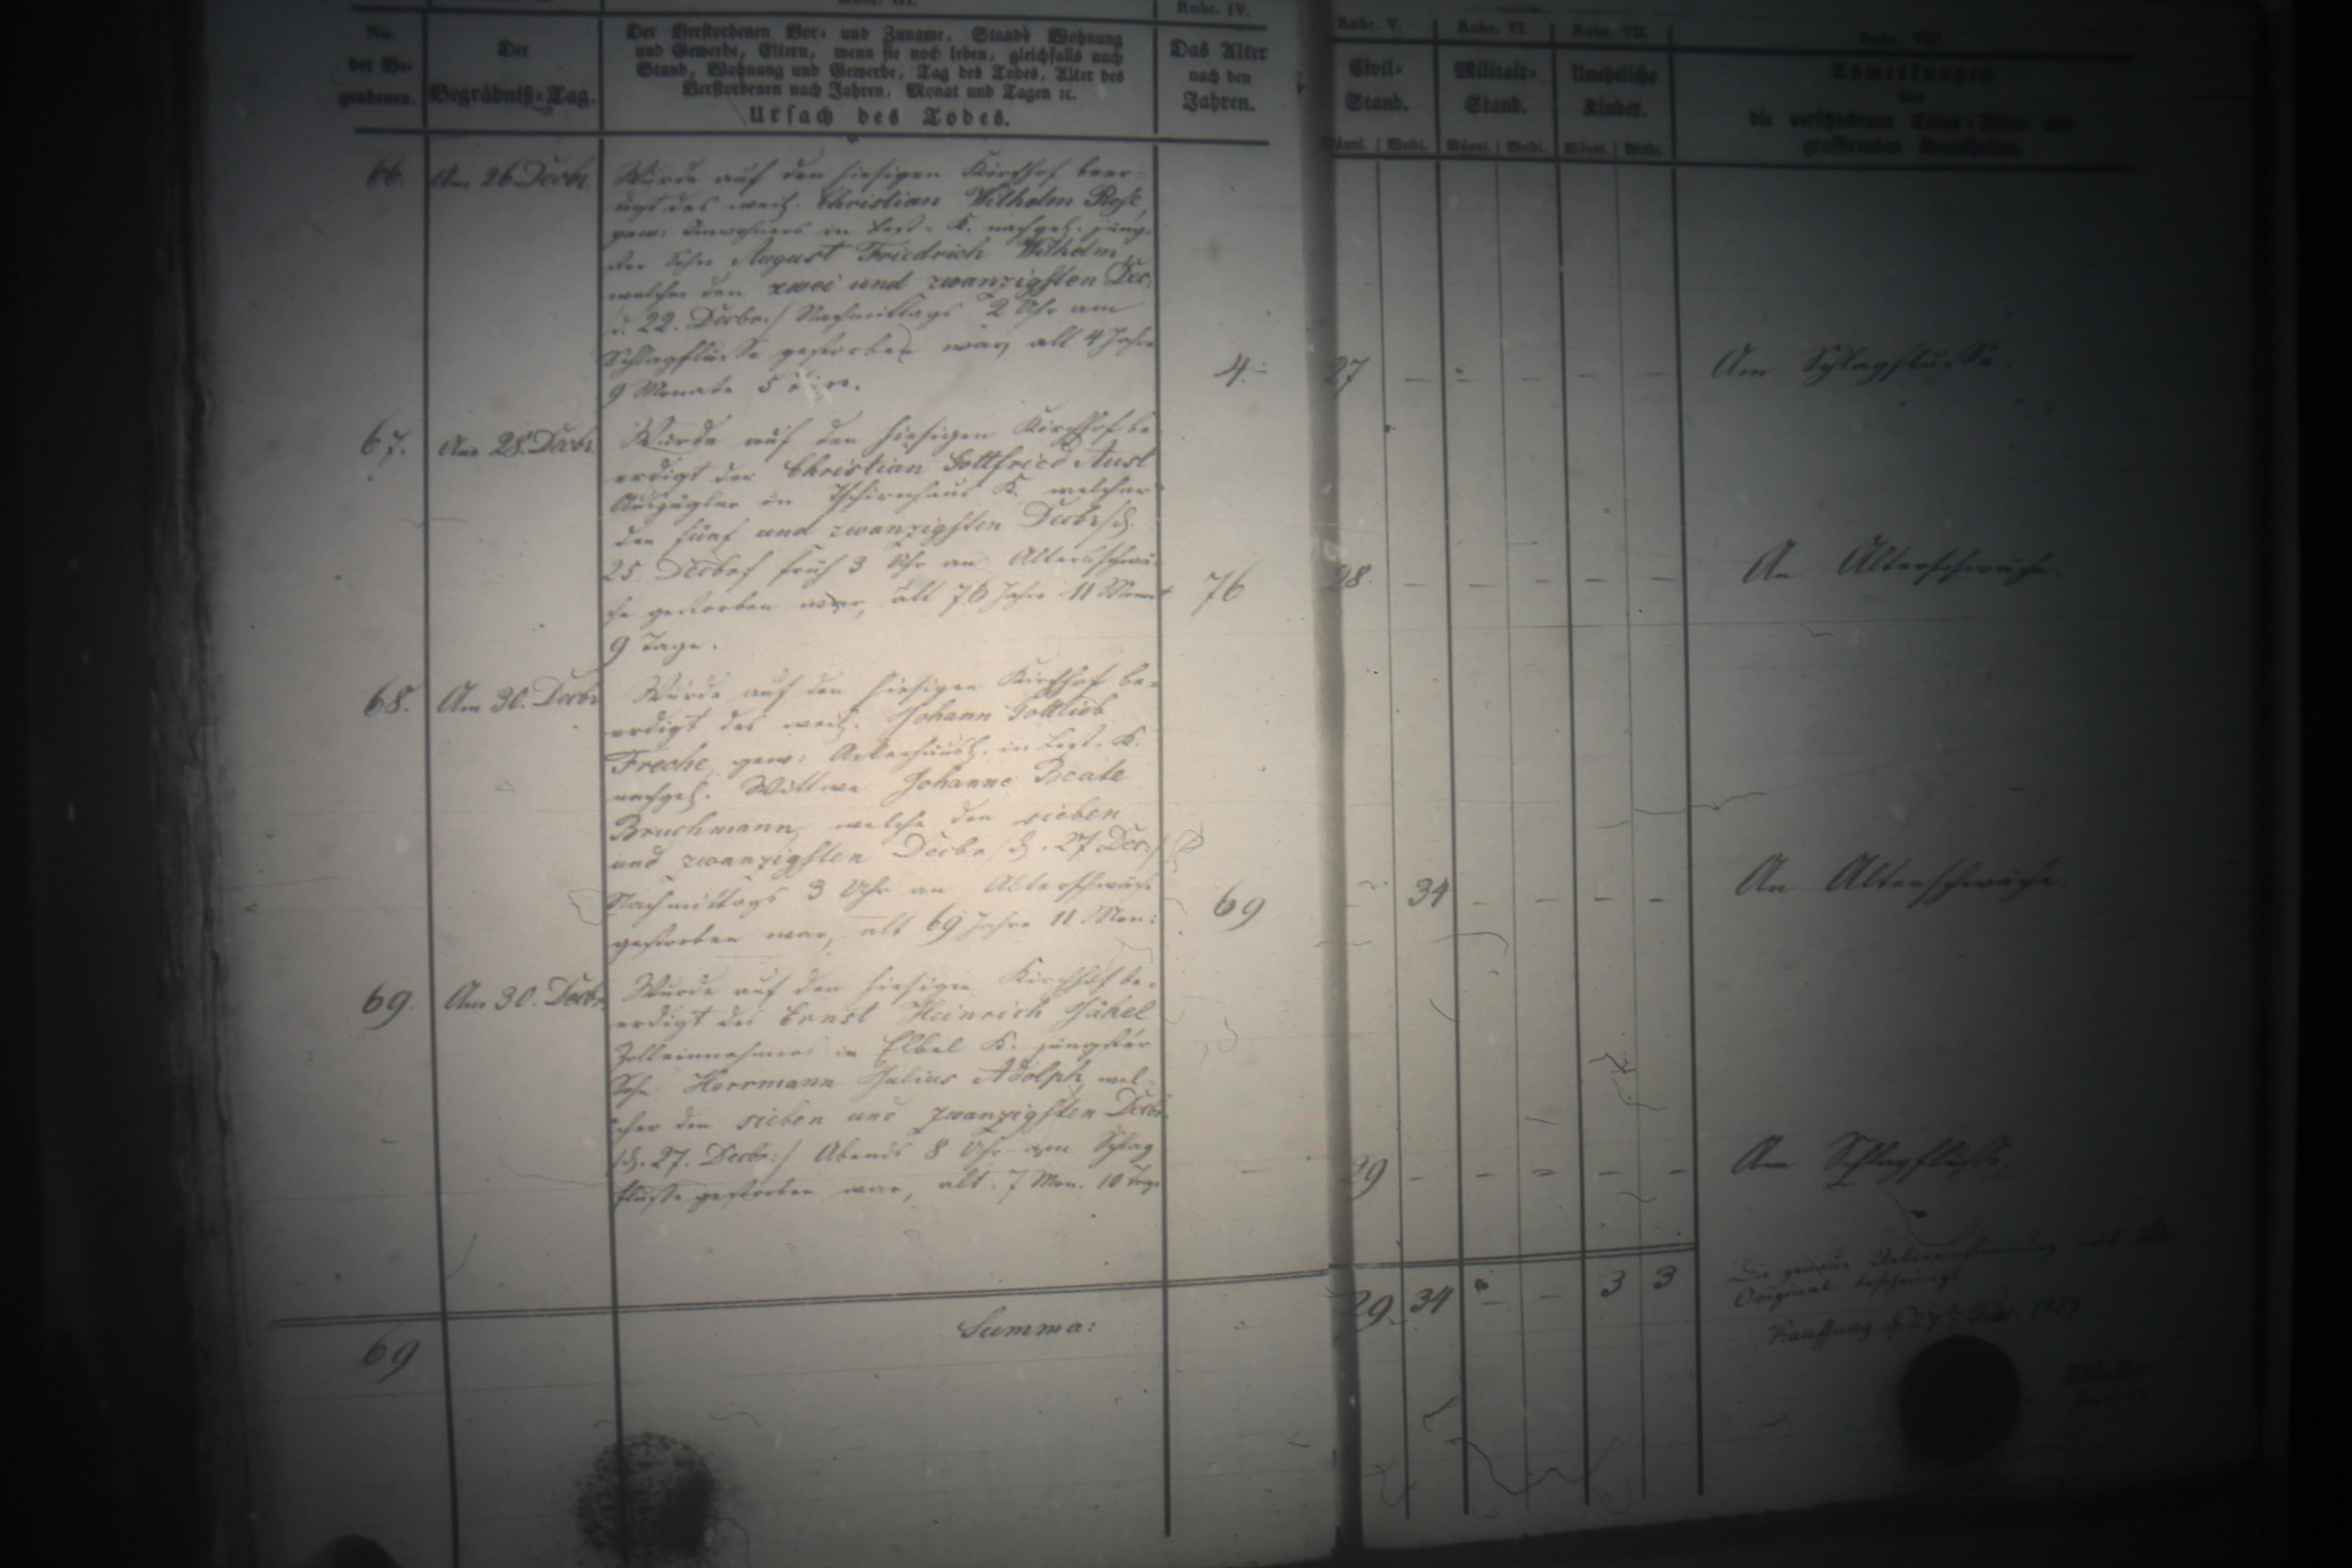 Rubr. IV.
Rubr. V.
Rubr. VI.
Rubr. VII.
Rubr. VIII.
No.
der Be-
grabenen.
Der
Begräbniß-Tag.
Der Verstorbenen Vor- und Zuname, Stand, Wohnung
und Gewerbe, Eltern, wenn sie noch leben, gleichfalls nach
Stand, Wohnung und Gewerbe, Tag des Todes, Alter des
Verstorbenen nach Jahren, Monat und Tagen ꝛc.
Ursach des Todes.
Das Alter
nach den
Jahren.
Civil-
Stand.
Männl. Weibl.
Militair-
Stand.
Männl. Weibl.
Uneheliche
Kinder.
Männl. Weibl.
Anmerkungen
über
die verschiedenen Todes-Arten und
grassirenden Krankheiten.
66. Am 26 Decbr.
Wurde auf den hiesigen Kirchhof beer-
digt des weil. Christian Wilhelm
gew. Inwohners in K. nachgel. jüng-
ster Sohn August Friedrich Wilhelm,
welcher den zwei und zwanzigsten Dec:
d. 22. Decbr:/ Nachmittags 2 Uhr am
Schlagflusse gestorben war, alt 4 Jahre
9 Monate 5
4. 27 – – – – – Am Schlagflusse.
67. Am 28. Decbr.
Wurde auf den hiesigen Kirchhof be-
erdigt der Christian Gottfried Aust
Auszügler in Tschirnhaus K. welcher
den fünf und zwanzigsten Decbr /d.
25 Decbr/ früh 3 Uhr an Altersschwä-
che gestorben war, alt 76 Jahre 11 Monat
9 Tage.
76 28. – – – – – An Alterschwäche.
68. Am 30. Decbr
Wurde auf den hiesigen Kirchhof be-
erdigt des weil. Johann Gottlieb
Freche, gew: Ackerhäusl. in K.
nachgel. Wittwe Johanne Beate
Bruchmann, welche den sieben
und zwanzigsten Decbr /d. 27 Dec:/
Nachmittags 3 Uhr an Alterschwäche
gestorben war, alt 69 Jahre 11 Mon:
69 – 34 – – – – An Alterschwäche
69. Am 30. Decbr.
Wurde auf den hiesigen Kirchhof be-
erdigt des Ernst Heinrich Jäkel
Zolleinnehmers in Elbel K. jüngster
Sohn Herrmann Julius Adolph, wel-
cher den sieben und zwanzigsten Decbr.
/d. 27. Decbr:/ Abends 8 Uhr am Schlag
flusse gestorben war, alt: 7 Mon. 10 Tage
– 29 – – – – – Am Schlagflusse.
69 Summa: 29. 34 – – 3 3
Die genaue Uebereinstimmung mit
Original bescheinigt
Kauffung